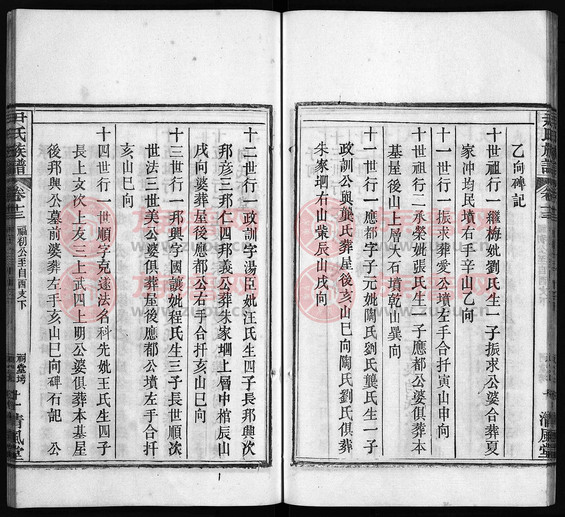 乙向碑記
十世祖行一 繼梅妣劉氏生一子振求公婆合葬夏
家沖均民墳右手辛山乙向
十一世行一 振求葬愛公墳左手合扦寅山申向
十世祖行二 承榮妣張氏生一子應都公婆俱葬本
基屋後山上層大石墳乾山巽向
十一世行一 應都字子元妣陶氏劉氏龔氏生一子
政訓公與龔氏葬屋後亥山巳向陶氏劉氏俱葬
朱家堈右山葉辰山戌向
十二世行一 政訓字湯臣妣汪氏生四子長邦興次
邦彥三邦仁四邦義公葬朱家堈上層中棺辰山
戌向婆葬屋後應都公右手合扦亥山巳向
十三世行一 邦興字國讓妣程氏生三子長世順次
世法三世美公婆俱葬屋後應都公墳左手合扦
亥山巳向
十四世行一 世順字克達法名科先妣王氏生四子
長上文次上友三上武四上明公婆俱葬本基屋
後邦興公墓前婆葬左手亥山巳向碑石記 公
尹氏族譜 卷十三 福初公至自酉支下 十一 清風堂